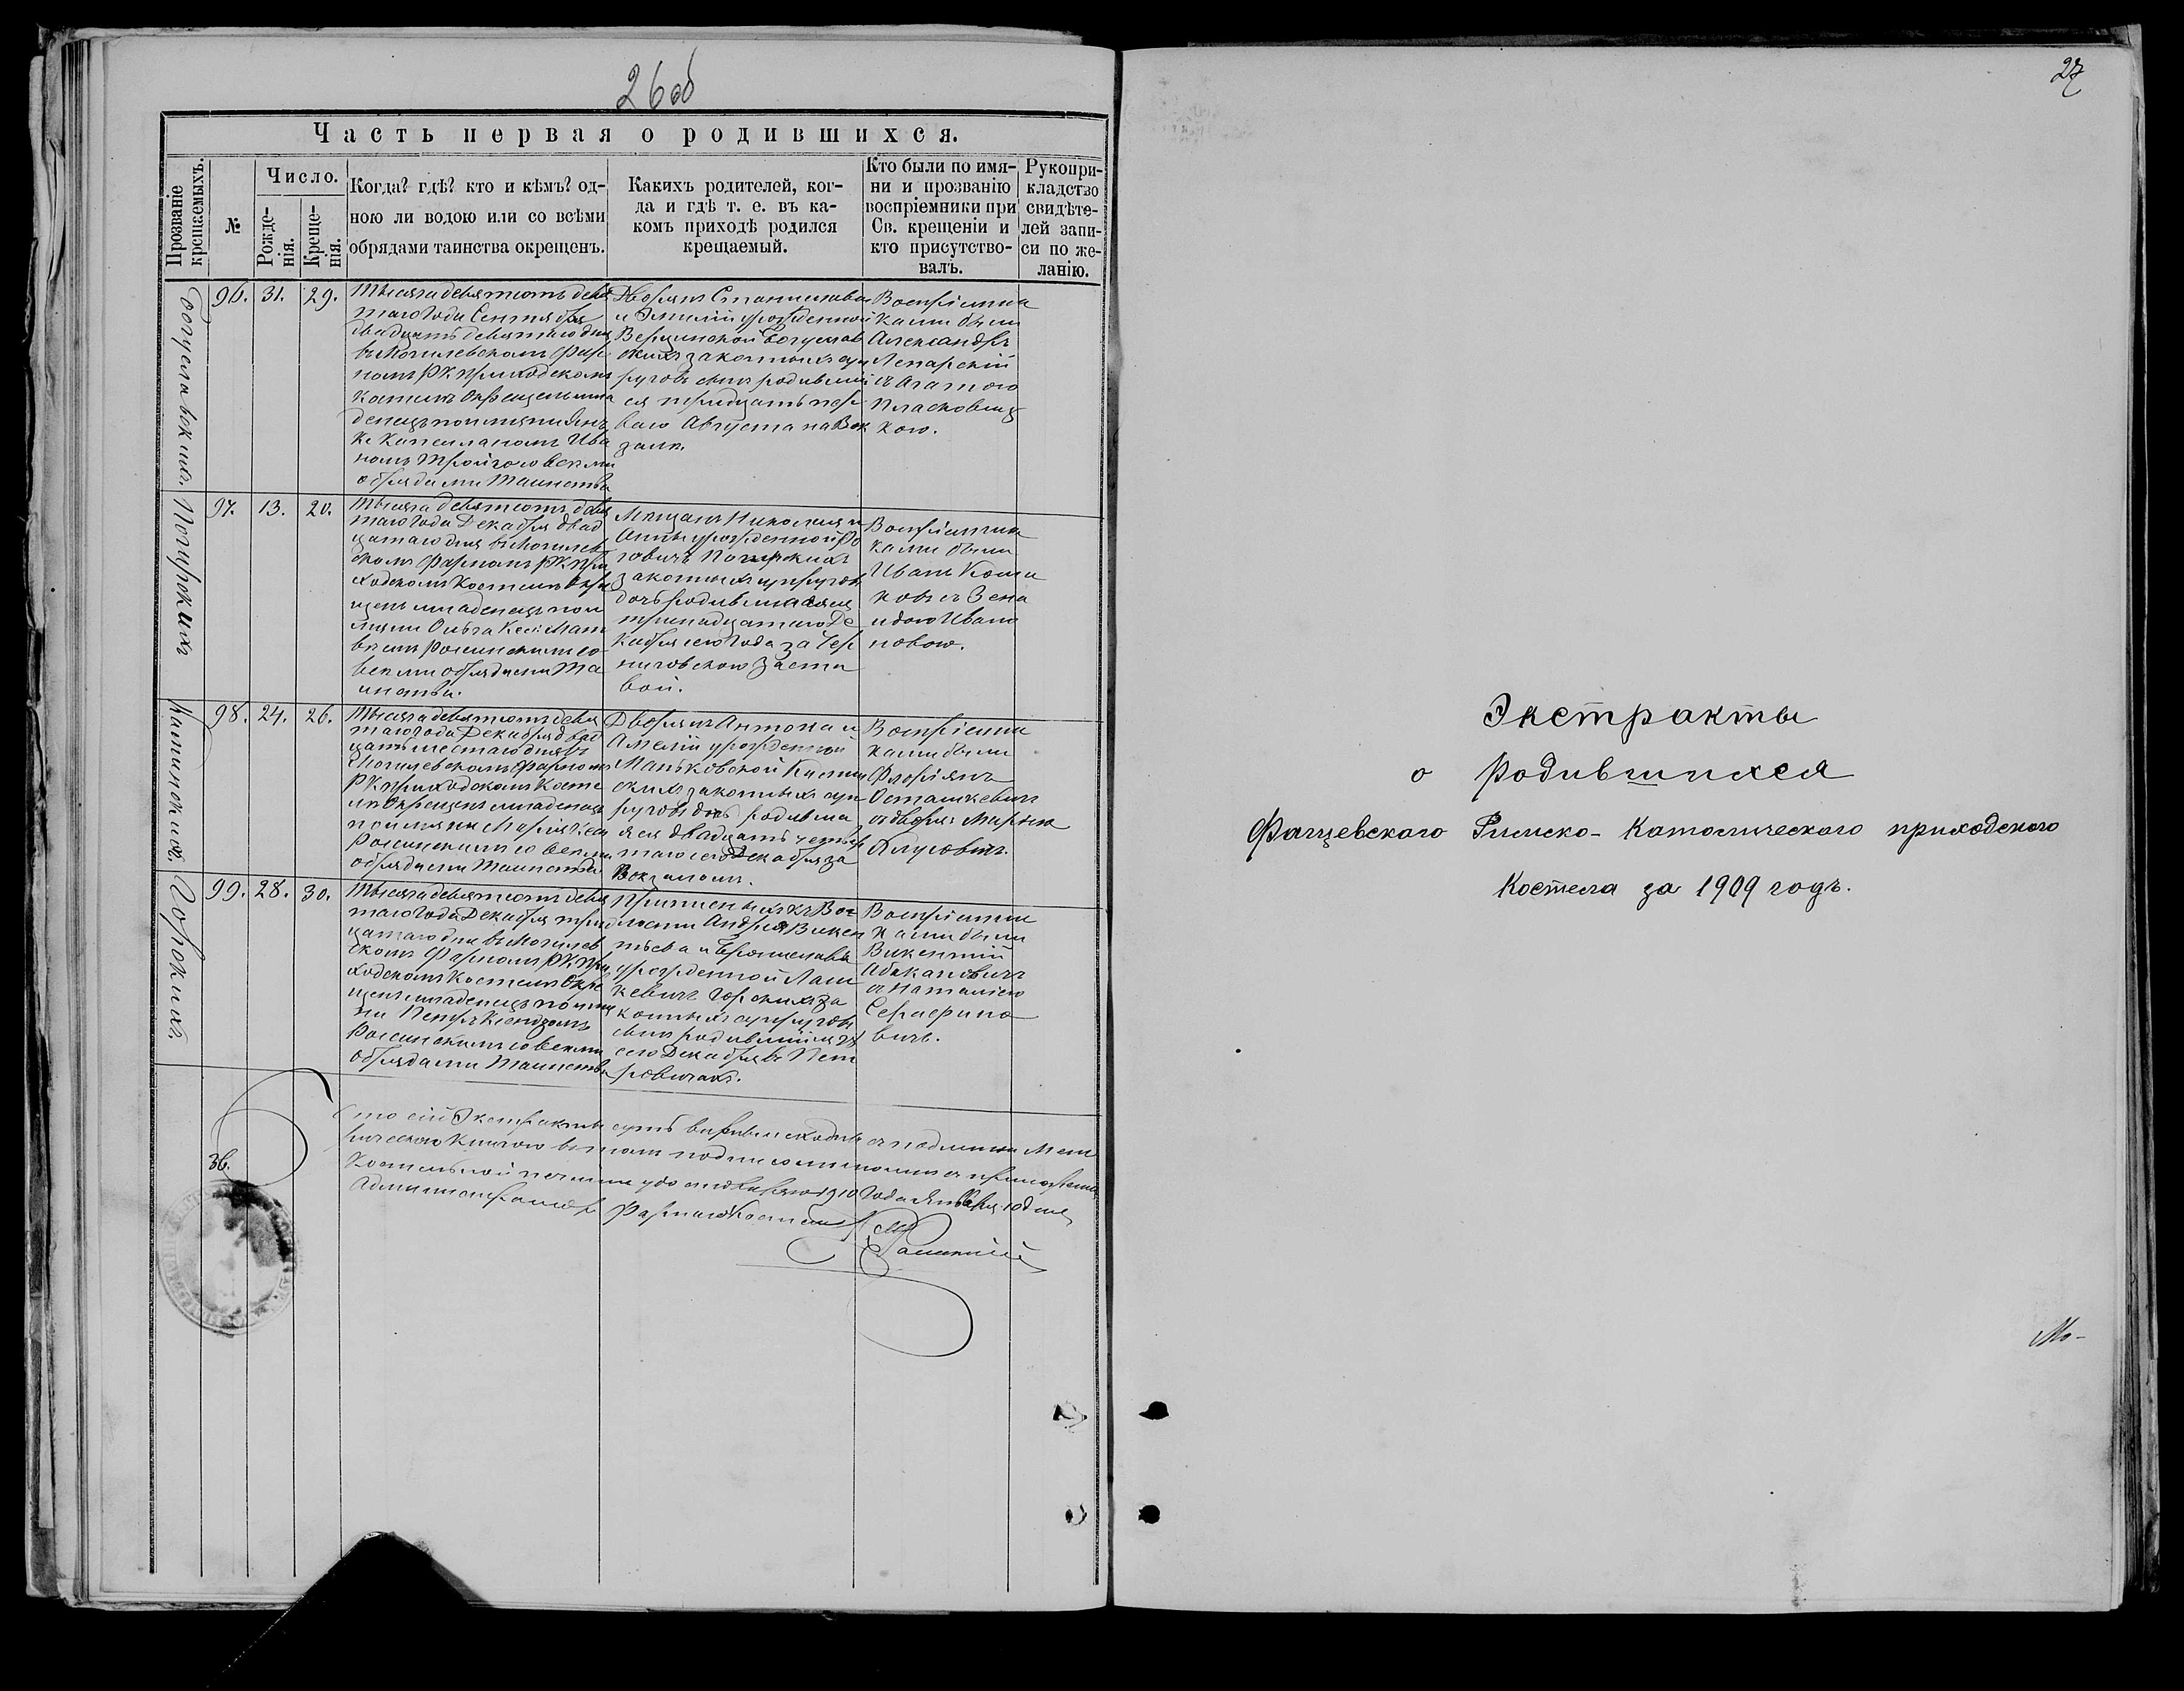 26об
Часть первая о родившихся.
Прозваніе крещаемыхъ.
№
Число.
Рожденія.
Крещенія.
Когда? гдѣ? кто и кѣмъ? од-
ною ли водою или со всѣми
обрядами таинства окрещенъ.
Какихъ родителей, ког-
да и гдѣ т. е. въ ка-
комъ приходѣ родился
крещаемый.
Кто были по имя-
ни и прозванію
воспріемники при
Св. крещеніи и
кто присутство-
валъ.
Рукопри-
кладство
свидѣте-
лей запи-
си по же-
ланію.
96. 31. 29.
Тысяча девятьсотъ девя
таго года Сентября
двадцать девятаго дня
въ Могилевскомъ Фар
номъ РК приходскомъ
Костелѣ Окрещенъ мла
денецъ по имени
Капеланомъ Ива
номъ
обрядами Таинства
Дворянъ Станислава
и Эмиліи урожденной
законныхъ суп
руговъ сынъ родившій
ся тридцать пер
ваго Августа на Вок
залѣ.
Воспріемни
ками были
Александръ
съ Агатою
кою.
Погирскихъ
97. 13. 20.
Тысяча девятьсотъ девя
таго года Декабря двад
цатаго дня въ Могилев
скомъ Фарномъ РК при
ходскомъ Костелѣ Окре
щенъ младенецъ по и
мени Ольга
всѣми обрядами Та
инства.
Мѣщанъ Николая и
Анны урожденной
Погирскихъ
законныхъ супруговъ
дочь родившаяся
тринадцатаго Де
кабря сего года за Чер
ниговскою заста
вой.
Воспріемни
ками были
Иванъ
съ Зена
идою Ивано
новою.
98. 24. 26.
Тысяча девятьсотъ девя
таго года Декабря двад
цать шестаго дня въ
Могилевскомъ Фарномъ
РК приходскомъ Косте
лѣ Окрещенъ младенецъ
по имени Марія
со всѣми
обрядами Таинства
Дворянъ Антона и
Амеліи урожденной
Маньковской
законныхъ суп
руговъ дочь родивша
яся двадцать четвер
таго сего Декабря за
Вокзаломъ.
Воспріемни
ками были
Флоріянъ
Осташкевичъ
99. 28. 30.
Тысяча девятьсотъ девя
таго года Декабря трид
цатаго дня въ Могилев
скомъ Фарномъ РК При
ходскомъ Костелѣ Окре
щенъ младенецъ по име
ни Петръ Ксендзомъ
со всѣми
обрядами Таинства
Андрея Викен
тьева и Брониславы
урожденной Лаш
кевичъ Горскихъ за
конныхъ супруговъ
сынъ родившійся 28
сего Декабря въ Пет
ровичахъ.
Воспріемни
ками были
Викентій
Абакановичъ
съ Наталіею
Серафино
вичъ.
Что сіи Экстракты суть вѣрны и сходны съ подлинною Мет
рическою Книгою въ томъ подписомъ моимъ съ приложеніемъ
Костельной печати удостовѣряю 1910 Года Января 10 дня
Администраторъ Фарнаго Костела
36.
27
Экстракты
о родившихся
Фащевского Римско-Католического приходского
Костела за 1909 годъ.
Мо-